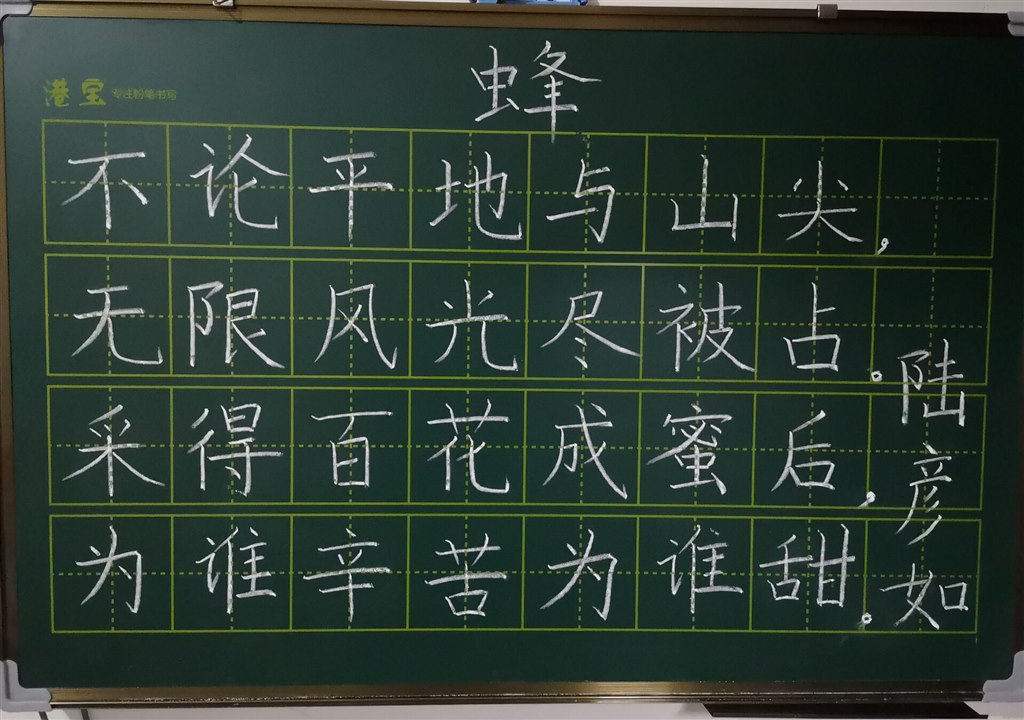 蜂
港宝 专注粉笔书写
不论平地与山尖,
无限风光尽被占。
采得百花成蜜后,
为谁辛苦为谁甜。
陆彦如